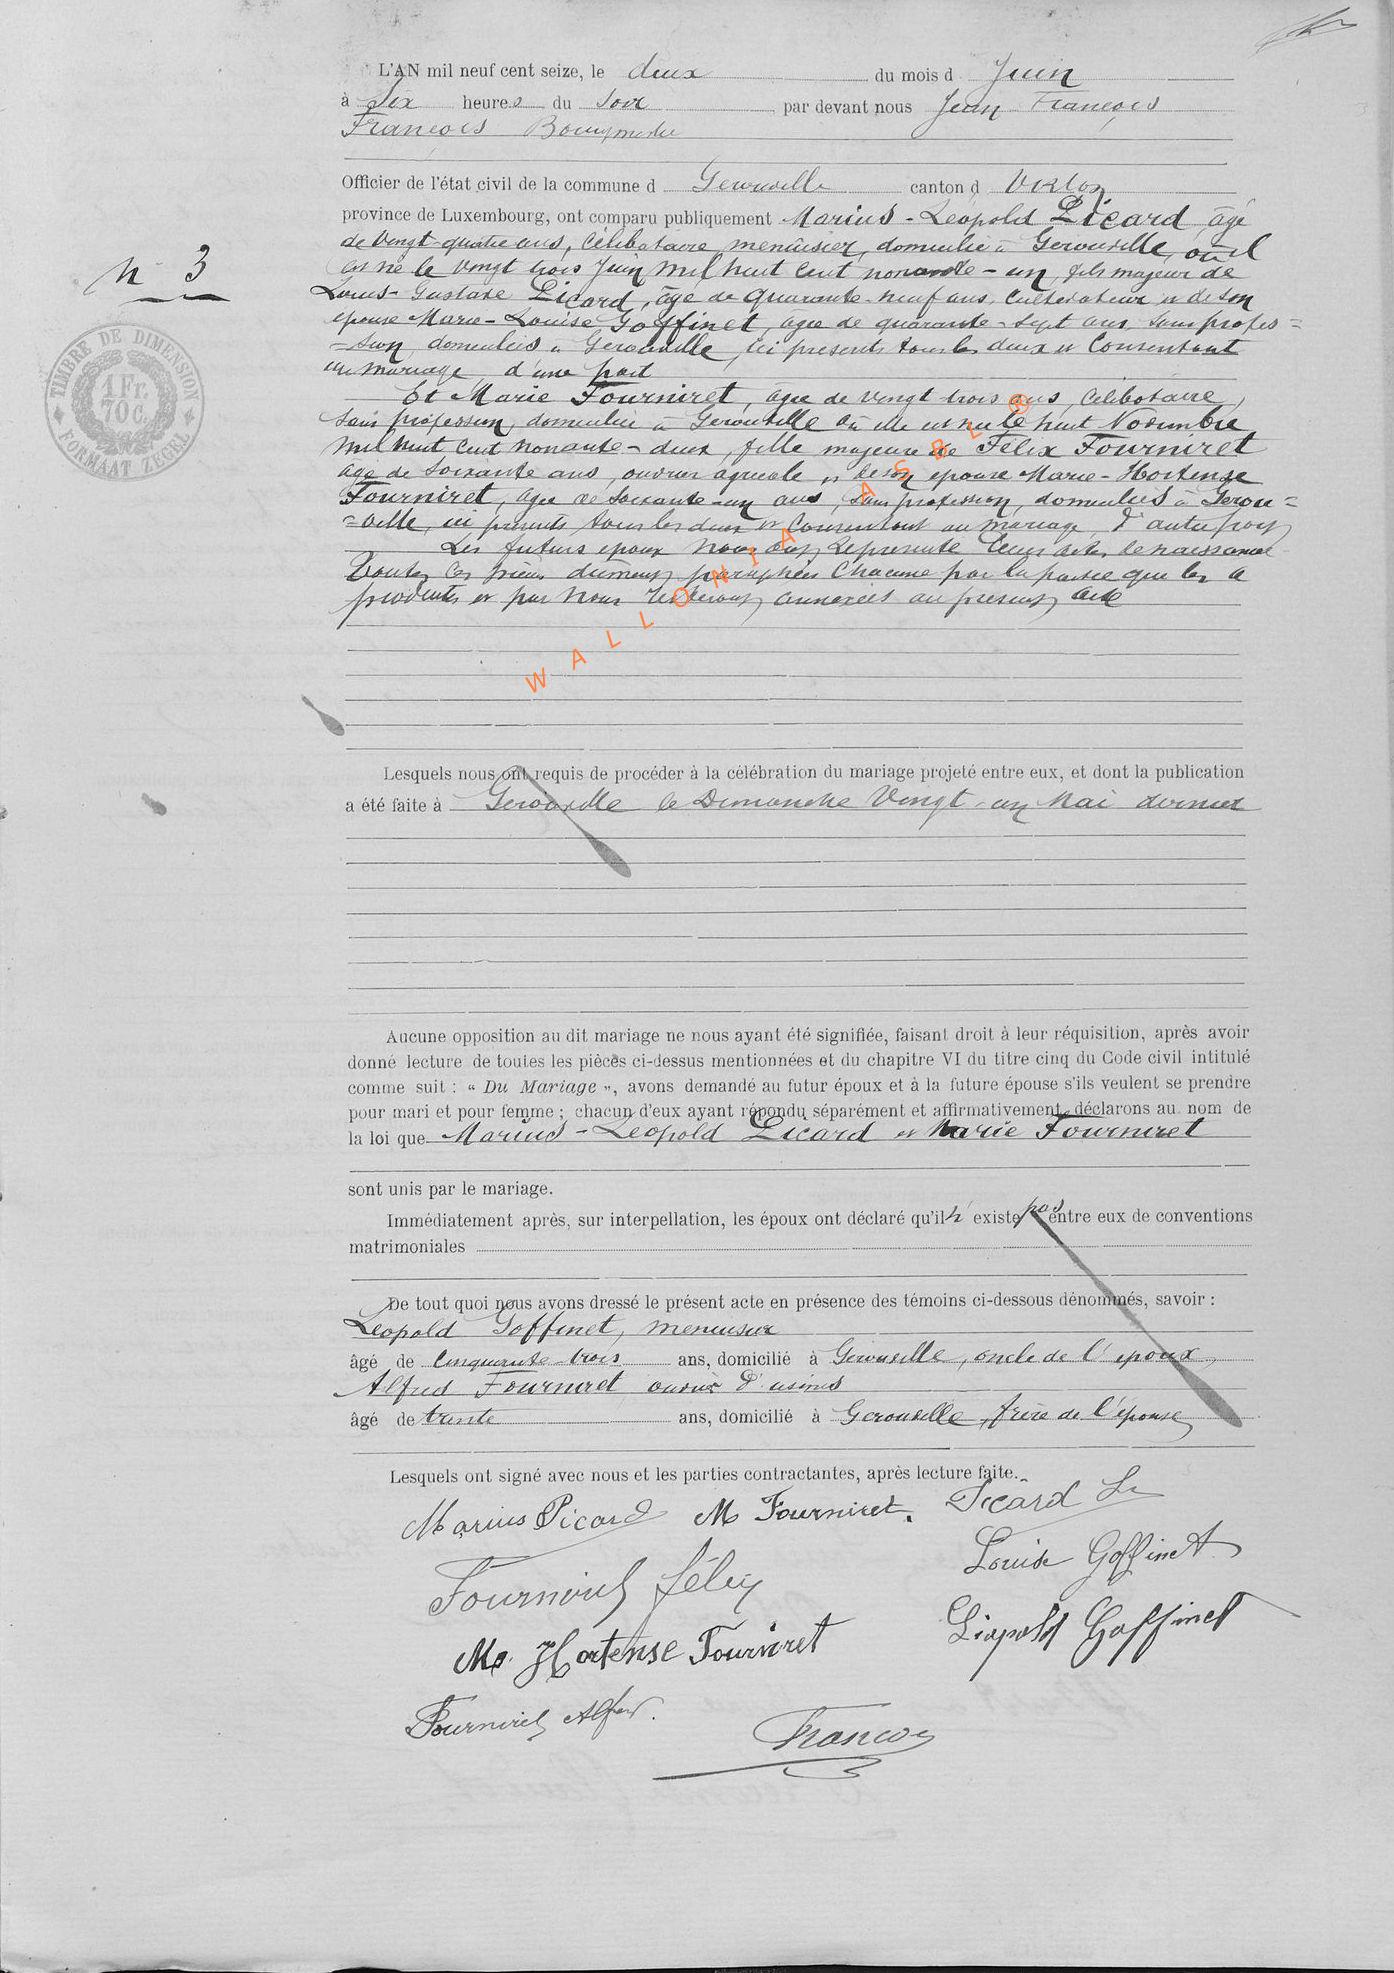 L'AN mil neuf cent seize, le deux du mois d Juin
à Six heures du Soir par devant nous Jean François
François Bourgmestre
Officier de l'état civil de la commune d Gerouville canton d Virton
province de Luxembourg, ont comparu publiquement Marius - Léopold Picard, âgé
de vingt-quatre ans, célibataire, menuisier, domicilié à Gerouville, où il
est né le vingt trois Juin mil huit cent nonante - un, fils majeur de
Louis - Gustave Picard, âgé de quarante-neuf ans, cultivateur et de son
épouse Marie - Louise Goffinet, agée de quarante - sept ans, sans profes=
=sion, domiciliés à Gerouville, ici présents tous les deux et consentant
au mariage, d'une part
Et Marie Fourniret, agée de vingt trois ans, célibataire,
sans profession, domiciliée à Gerouville où elle est née le huit Novembre
mil huit cent nonante - deux, fille majeure de Félix Fourniret
âgé de soixante ans, ouvrier agricole et de son épouse Marie - Hortense
Fourniret, agée de soixante-un ans, sans profession, domiciliés à Gerou=
=ville, ici présents tous les deux et consentant au mariage, d'autre part
Les futurs époux nous ont représenté leurs actes de naissance
toutes ces pièces dûment paraphées chacune par la partie que les a
produites et par nous resteront annexées au présent acte
WALLONIA ASBL ®
N° 3
TIMBRE DE DIMENSION
1 Fr. 70 C.
FORMAAT ZEGEL
Lesquels nous ont requis de procéder à la célébration du mariage projeté entre eux, et dont la publication
a été faite à Gerouville le Dimanche Vingt-un Mai dernier
Aucune opposition au dit mariage ne nous ayant été signifiée, faisant droit à leur réquisition, après avoir
donné lecture de toutes les pièces ci-dessus mentionnées et du chapitre VI du titre cinq du Code civil intitulé
comme suit : « Du Mariage », avons demandé au futur époux et à la future épouse s'ils veulent se prendre
pour mari et pour femme ; chacun d'eux ayant répondu séparément et affirmativement, déclarons au nom de
la loi que Marius - Léopold Picard et Marie Fourniret
sont unis par le mariage.
Immédiatement après, sur interpellation, les époux ont déclaré qu'il n' existe pas entre eux de conventions
matrimoniales
De tout quoi nous avons dressé le présent acte en présence des témoins ci-dessous dénommés, savoir :
Léopold Goffinet, menuisier
âgé de cinquante-trois ans, domicilié à Gerouville, oncle de l'époux,
Alfred Fourniret ouvrier d'usines
âgé de trente ans, domicilié à Gerouville, frère de l'épouse
Lesquels ont signé avec nous et les parties contractantes, après lecture faite.
Marius Picard M Fourniret. Picard Ls
Louise Goffinet
Fourniret Félix
Léopold Goffinet
Me. Hortense Fourniret
Fourniret Alfred.
François